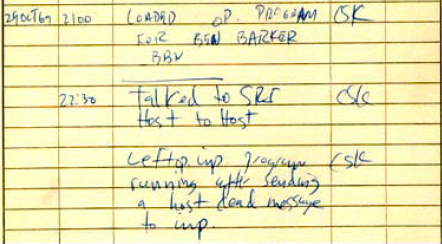 29OCT69 2100 LOADED OP. PROGRAM CSK
FOR BEN BARKER
BBN
22:30 Talked to SRI CSK
Host to Host
Left op. imp. program CSK
running after sending
a host dead message
to imp.